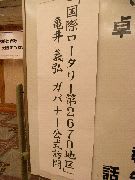 国際ロータリー第2670地区
亀井 義弘 ガバナー公式訪問
卓